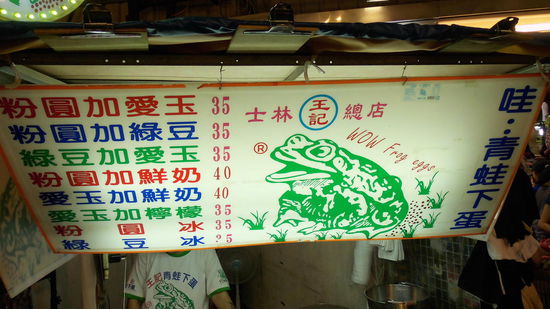 粉圓加愛玉 35
粉圓加綠豆 35
綠豆加愛玉 35
粉圓加鮮奶 40
愛玉加鮮奶 40
愛玉加檸檬 35
粉圓冰 35
綠豆冰 35
士林 王記 總店
®
WOW Frog eggs
哇‥青蛙下蛋
王記 青蛙下蛋